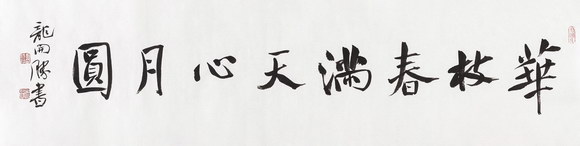 華枝春滿天心月圓
龍開勝書